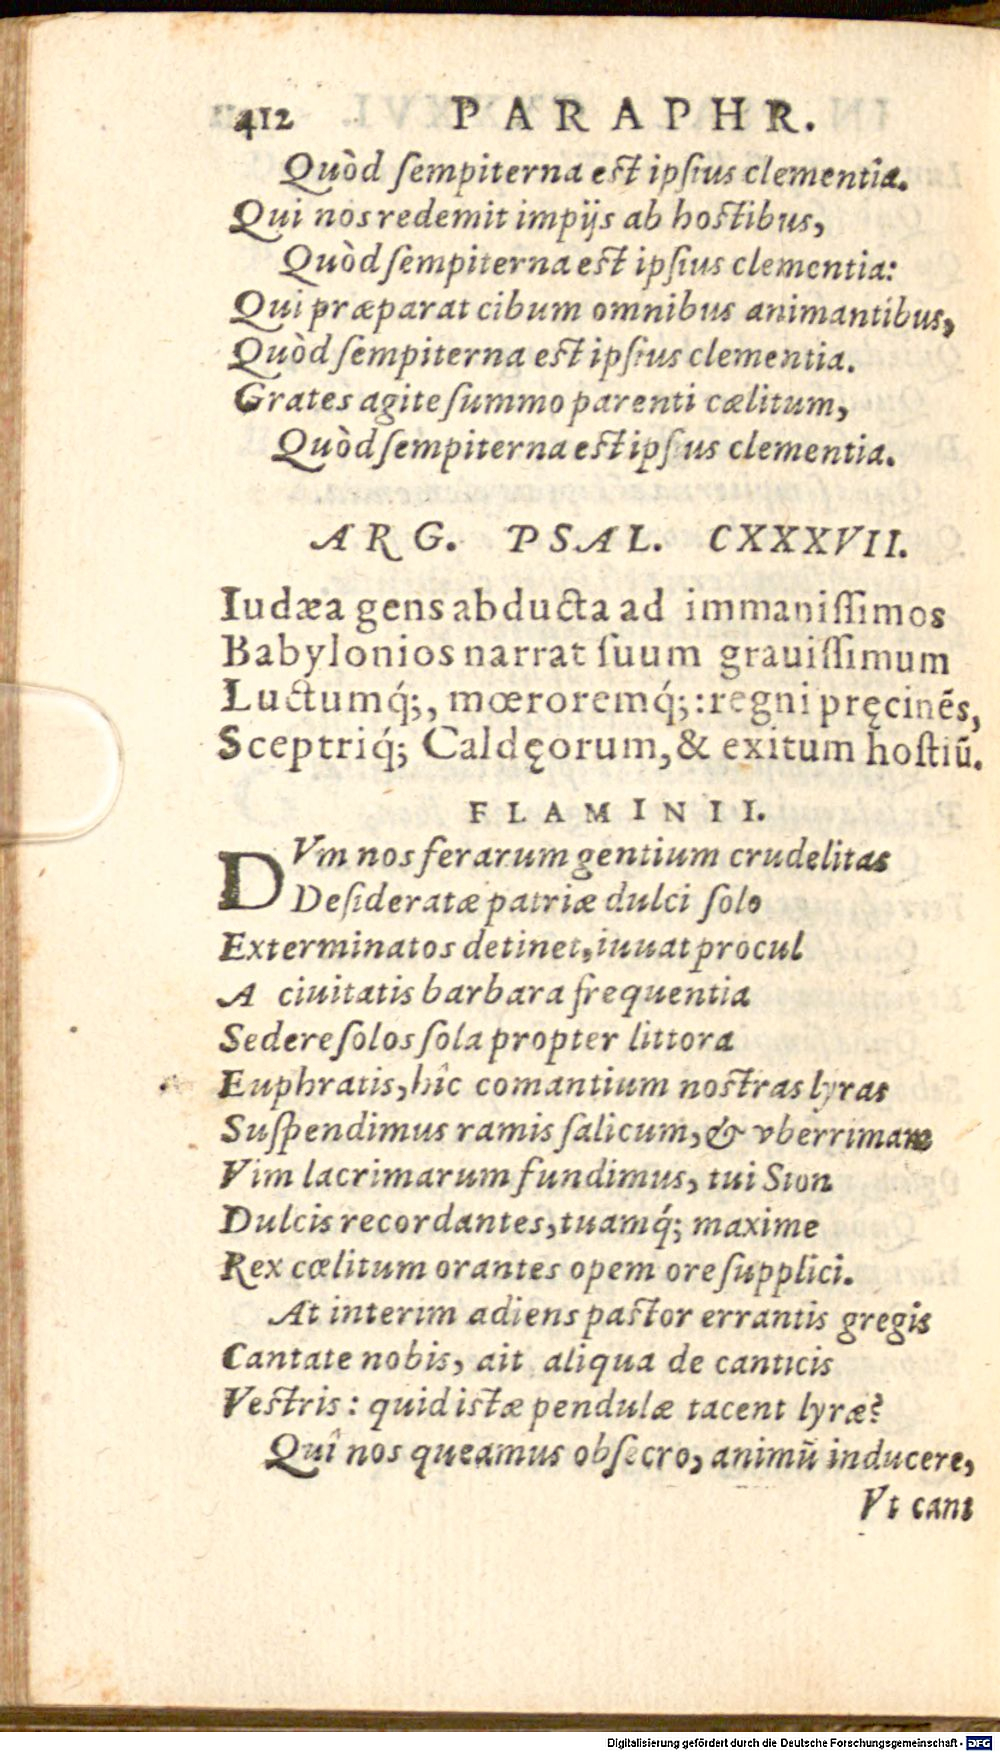 412 PARAPHR.
Quòd ſempiterna eſt ipſius clementia.
Qui nos redemit impijs ab hoſtibus,
Quòd ſempiterna eſt ipſius clementia:
Qui præparat cibum omnibus animantibus,
Quòd ſempiterna eſt ipſius clementia.
Grates agite ſummo parenti cælitum,
Quòd ſempiterna eſt ipſius clementia.
ARG. PSAL. CXXXVII.
Iudæa gens abducta ad immaniſſimos
Babylonios narrat ſuum grauiſſimum
Luctumq́;, mœroremq́;: regni pręcinẽs,
Sceptriq́; Caldęorum, & exitum hoſtiũ.
FLAMINII.
DVm nos ferarum gentium crudelitas
Deſideratæ patriæ dulci ſolo
Exterminatos detinet, iuuat procul
A ciuitatis barbara frequentia
Sedere ſolos ſola propter littora
Euphratis, hîc comantium noſtras lyras
Suſpendimus ramis ſalicum, & vberrimam
Vim lacrimarum fundimus, tui Sion
Dulcis recordantes, tuamq́; maxime
Rex cœlitum orantes opem ore ſupplici.
At interim adiens paſtor errantis gregis
Cantate nobis, ait aliqua de canticis
Veſtris: quid iſtæ pendulæ tacent lyræ?
Quî nos queamus obſecro, animũ inducere,
Vt cant
Digitalisierung gefördert durch die Deutsche Forschungsgemeinschaft - DFG